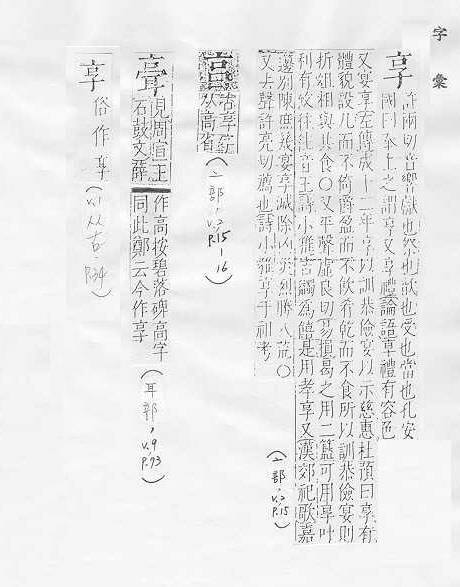 字彙
享
許兩切音響獻也祭也歆也受也當也孔安
國曰奉上之謂享又享禮論語享禮有容色
又宴享左傳成十二年享以訓恭儉宴以示慈惠杜預曰享有
體貌設几而不倚爵盈而不飲肴乾而不食所以訓恭儉宴則
折俎相與共食〇又平聲虛良切易損曷之用二簋可用享叶
利有攸往往音王詩小雅吉蠲為饎是用孝享又漢郊祀歌嘉
籩列陳庶幾宴享滅除凶災烈騰八荒〇
又去聲許亮切薦也詩小雅享于祖考
(亠部,v.2 P.15)
古享字
从高省
(亠部,v.2 P.15-16)
見周宣王
石鼓文薛
作高按碧落碑高字
同此鄭云今作享
(耳部,v.9 P.73)
享
俗作享
(v.1 从古 P.34)